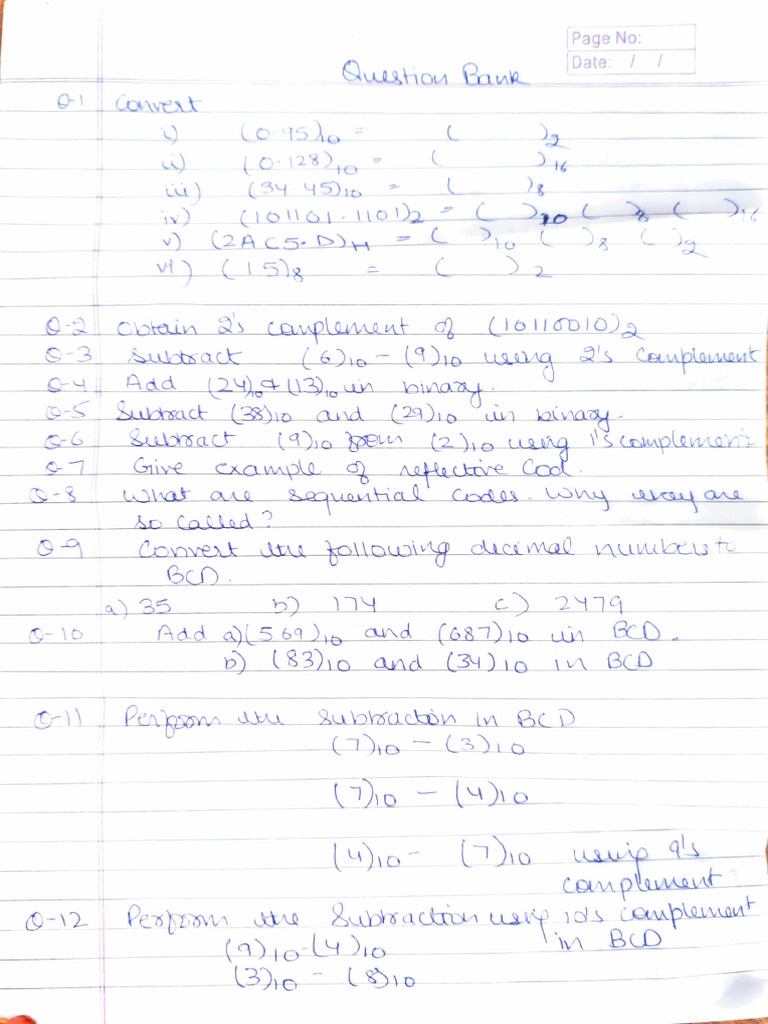 Page No:
Date: / /
Question Bank
Q-1 Convert
i) (0.95)₁₀ = ( )₂
ii) (0.128)₁₀ = ( )₁₆
iii) (34.45)₁₀ = ( )₈
iv) (101101.1101)₂ = ( )₁₀ ( )₈ ( )₁₆
v) (2AC5.D)H = ( )₁₀ ( )₈ ( )₂
vi) (15)₈ = ( )₂
Q-2 Obtain 2's complement of (10110010)₂
Q-3 Subtract (6)₁₀ - (9)₁₀ using 2's complement
Q-4 Add (24)₁₀ & (13)₁₀ in binary.
Q-5 Subtract (38)₁₀ and (29)₁₀ in binary.
Q-6 Subtract (9)₁₀ from (2)₁₀ using 1's complement
Q-7 Give example of reflective Cod.
Q-8 What are sequential codes. Why are
so called?
Q-9 Convert the following decimal numbers to
BCD.
a) 35 b) 174 c) 2479
Q-10 Add a) (569)₁₀ and (687)₁₀ in BCD.
b) (83)₁₀ and (34)₁₀ in BCD
Q-11 Perform the Subtraction in BCD
(7)₁₀ - (3)₁₀
(7)₁₀ - (4)₁₀
(4)₁₀ - (7)₁₀ using 9's
complement
Q-12 Perform the Subtraction using 10's complement
in BCD
(9)₁₀ - (4)₁₀
(3)₁₀ - (8)₁₀